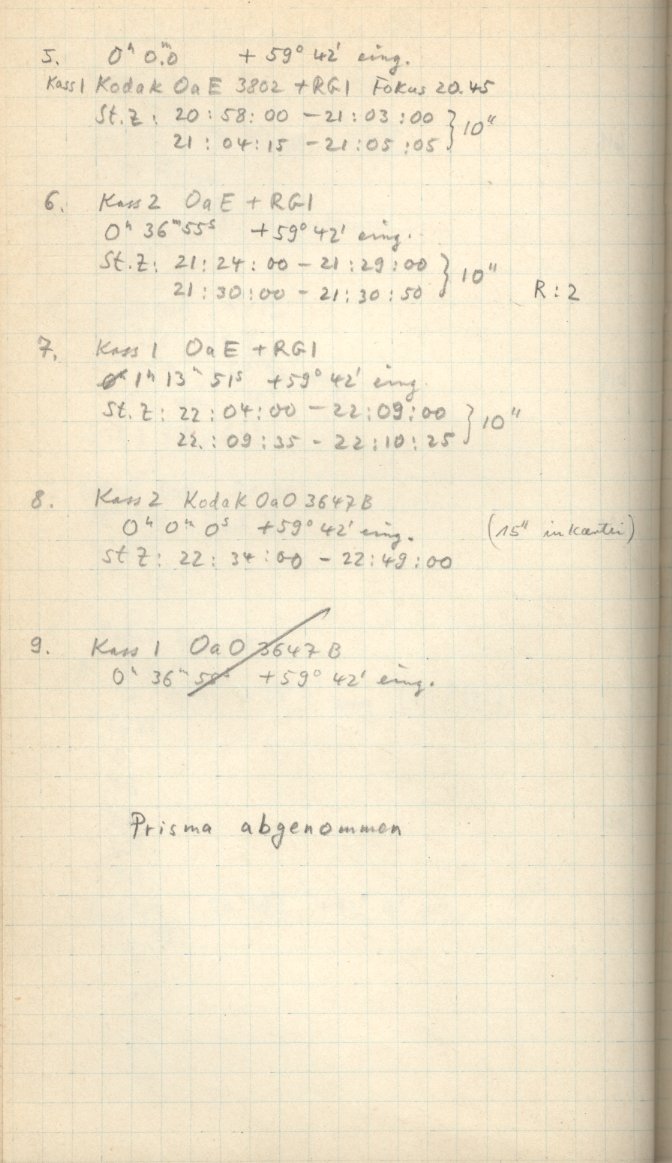 5. 0ʰ 0.ᵐ0 + 59° 42' eing.
Kass 1 Kodak OaE 3802 + RG1 Fokus 20.45
St.Z: 20:58:00 - 21:03:00 } 10"
21:04:15 - 21:05:05
6. Kass 2 OaE + RG1
0ʰ 36ᵐ 55ˢ + 59° 42' eing.
St.Z: 21:24:00 - 21:29:00 } 10"
21:30:00 - 21:30:50 R:2
7. Kass 1 OaE + RG1
1ʰ 13ᵐ 51ˢ + 59° 42' eing.
St.Z: 22:04:00 - 22:09:00 } 10"
22:09:35 - 22:10:25
8. Kass 2 Kodak OaO 3647B
0ʰ 0ᵐ 0ˢ + 59° 42' eing. (15" in Kartei)
St Z: 22:34:00 - 22:49:00
9. Kass 1 OaO 3647B
0ʰ 36ᵐ 55ˢ + 59° 42' eing.
Prisma abgenommen